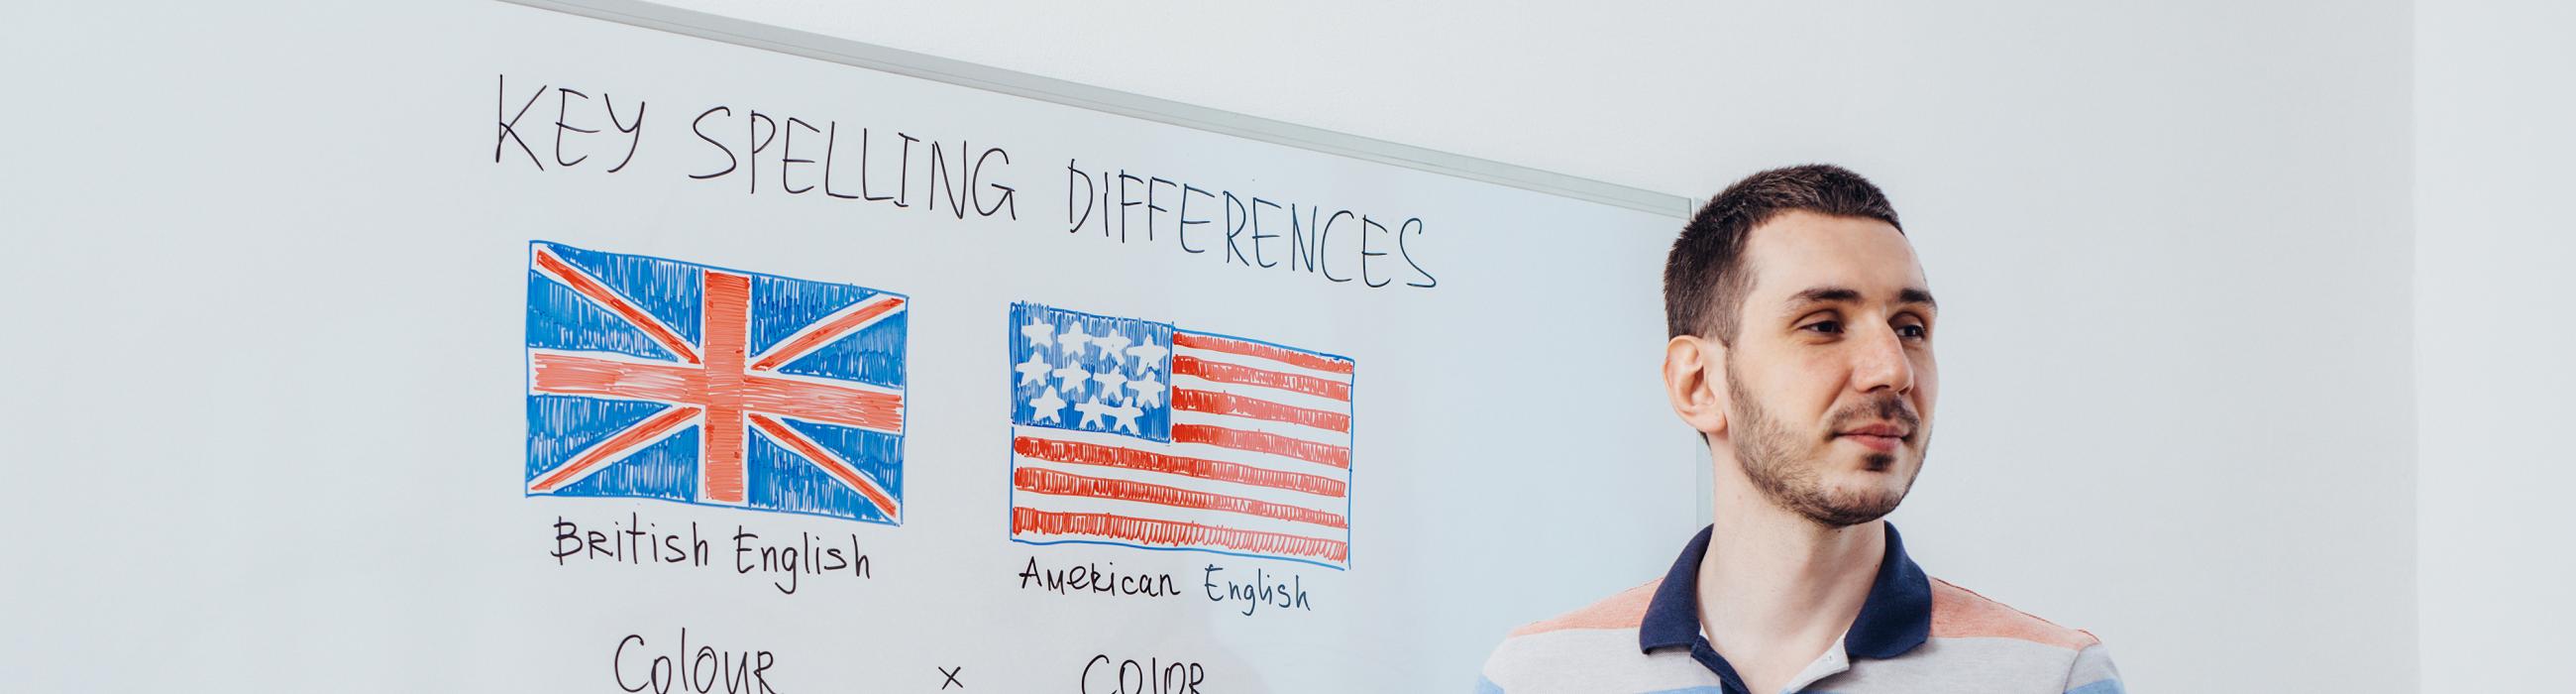 KEY SPELLING DIFFERENCES
British English
American English
Colour x COlOR